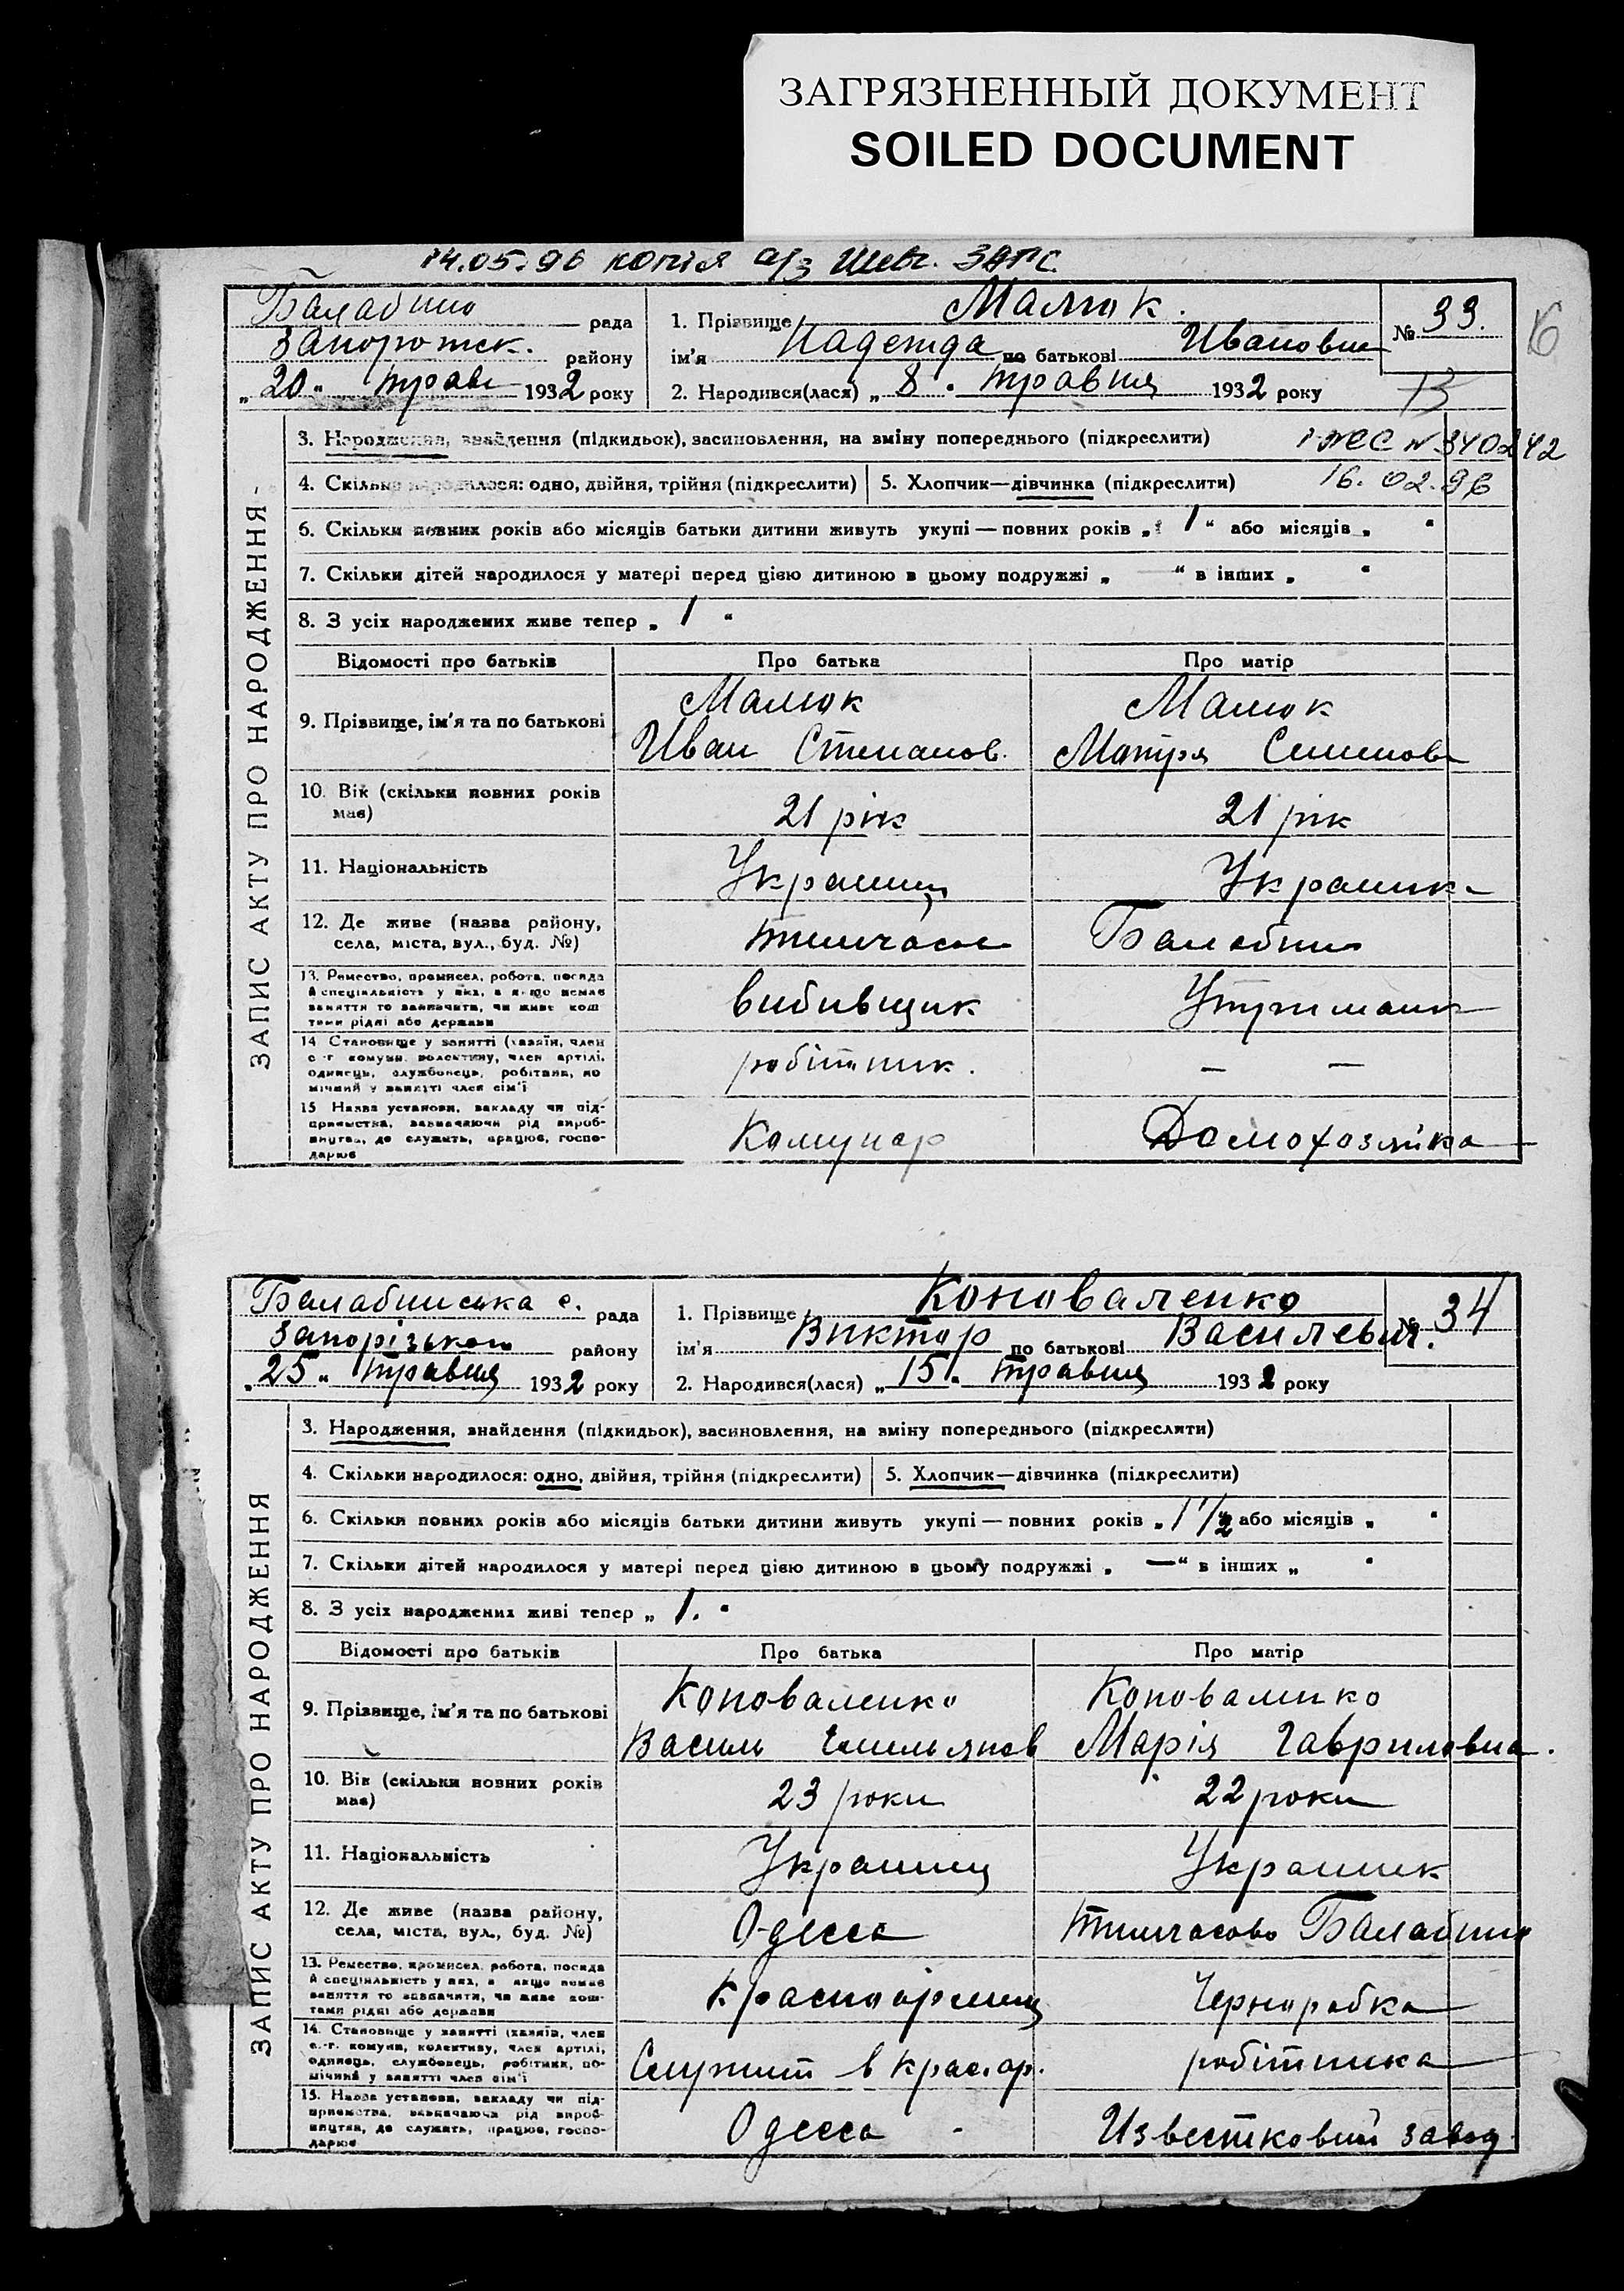 ЗАГРЯЗНЕННЫЙ ДОКУМЕНТ
SOILED DOCUMENT
14.05.96 копія а/з Шевч. ЗАГС
Балабино рада
Запорожск. району
„20“ трав 1932 року
1. Прізвище Малюк.
ім'я Надежда по батькові Ивановна
2. Народився(лася) „8“ травня 1932 року
№ 33.
ЗАПИС АКТУ ПРО НАРОДЖЕННЯ
3. Народження, знайдення (підкидьок), засиновлення, на зміну попереднього (підкреслити)
N 340242
4. Скільки народилося: одно, двійня, трійня (підкреслити) 5. Хлопчик—дівчинка (підкреслити) 16.02.96
6. Скільки повних років або місяців батьки дитини живуть укупі — повних років „1“ або місяців „ “
7. Скільки дітей народилося у матері перед цією дитиною в цьому подружжі „ “ в інших „ “
8. З усіх народжених живе тепер „1“
Відомості про батьків Про батька Про матір
9. Прізвище, ім'я та по батькові Малюк Малюк
Иван Степанов. Мотря Семенов
10. Вік (скільки повних років має) 21 рік 21 рік
11. Національність Украинец Украинка
12. Де живе (назва району, села, міста, вул., буд. №) тимчасов Балабино
13. Ремество, промисел, робота, посада й спеціальність у них, а якщо немає заняття то зазначити, чи живе коштами рідні або держави вибивщик Утриманк
14. Становище у занятті (хазяїн, член с.-г. комуни, колективу, член артілі, одинець, службовець, робітник, помічний у занятті член сім'ї робітник. — —
15. Назва установи, закладу чи підприємства, зазначаючи рід виробництва, де служить, працює, господарює Комунар Домохозяйка
Балабинська с. рада
Запорізького району
„25“ травня 1932 року
1. Прізвище Коноваленко
ім'я Виктор по батькові Василевич.
2. Народився(лася) „15“ травня 1932 року
№ 34
ЗАПИС АКТУ ПРО НАРОДЖЕННЯ
3. Народження, знайдення (підкидьок), засиновлення, на зміну попереднього (підкреслити)
4. Скільки народилося: одно, двійня, трійня (підкреслити) 5. Хлопчик—дівчинка (підкреслити)
6. Скільки повних років або місяців батьки дитини живуть укупі — повних років „1 1/2 або місяців „ “
7. Скільки дітей народилося у матері перед цією дитиною в цьому подружжі „—“ в інших „ “
8. З усіх народжених живі тепер „1.“
Відомості про батьків Про батька Про матір
9. Прізвище, ім'я та по батькові Коноваленко Коноваленко
Василь Емельянов Марія Гавриловна.
10. Вік (скільки повних років має) 23 роки 22 роки
11. Національність Украинец Украинк
12. Де живе (назва району, села, міста, вул., буд. №) Одесса тимчасово Балабино
13. Ремество, промисел, робота, посада й спеціальність у них, а якщо немає заняття то зазначити, чи живе коштами рідні або держави Красноармиец Чернорабка
14. Становище у занятті (хазяїн, член с.-г. комуни, колективу, член артілі, одинець, службовець, робітник, помічний у занятті член сім'ї Служит в Крас.ар. робітника
15. Назва установи, закладу чи підприємства, зазначаючи рід виробництва, де служить, працює, господарює Одесса Известковий завод